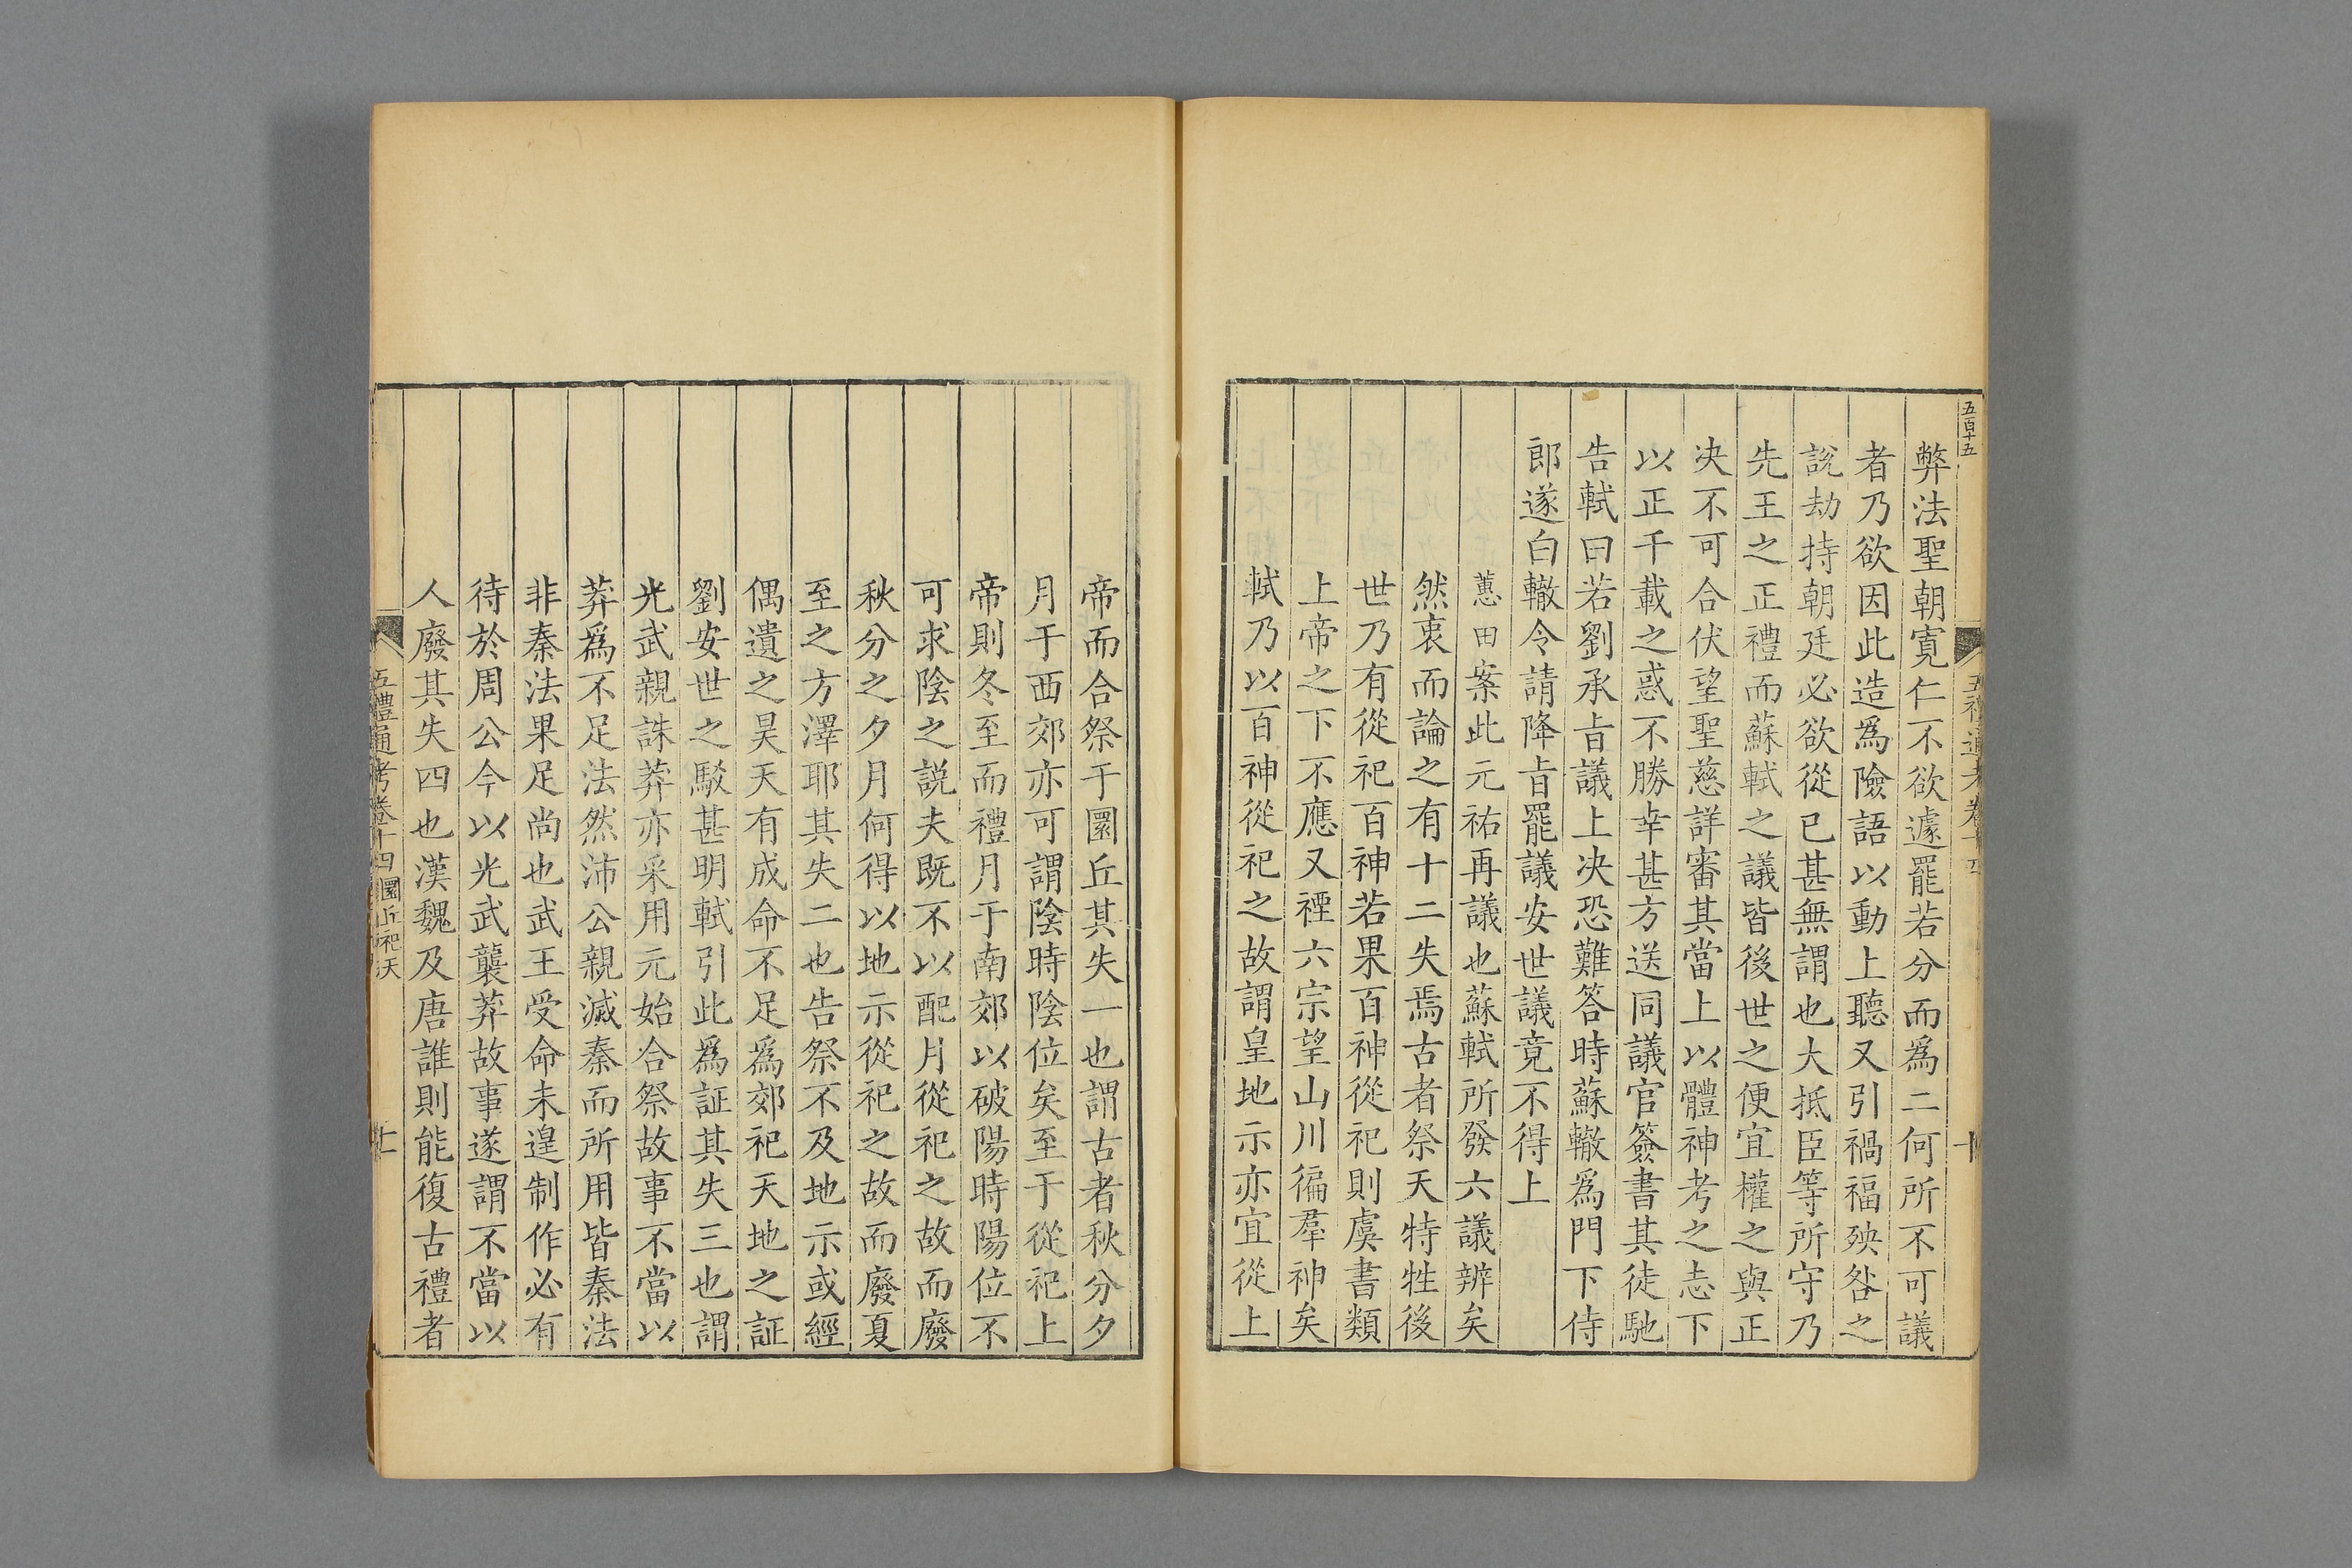 五百十五
五禮通考卷十四
十
弊法聖朝寬仁不欲遽罷若分而爲二何所不可議
者乃欲因此造爲險語以動上聽又引禍福殃咎之
說劫持朝廷必欲從已甚無謂也大抵臣等所守乃
先王之正禮而蘇軾之議皆後世之便宜權之與正
决不可合伏望聖慈詳審其當上以體神考之志下
以正千載之惑不勝幸甚方送同議官簽書其徒馳
告軾曰若劉承旨議上决恐難答時蘇轍爲門下侍
郎遂白轍令請降旨罷議安世議竟不得上
蕙田案此元祐再議也蘇軾所發六議辨矣
然衷而論之有十二失焉古者祭天特牲後
世乃有從祀百神若果百神從祀則虞書類
上帝之下不應又禋六宗望山川徧羣神矣
軾乃以百神從祀之故謂皇地示亦宜從上
帝而合祭于圜丘其失一也謂古者秋分夕
月于西郊亦可謂陰時陰位矣至于從祀上
帝則冬至而禮月于南郊以破陽時陽位不
可求陰之説夫既不以配月從祀之故而廢
秋分之夕月何得以地示從祀之故而廢夏
至之方澤耶其失二也告祭不及地示或經
偶遺之昊天有成命不足爲郊祀天地之証
劉安世之駁甚明軾引此爲証其失三也謂
光武親誅莽亦采用元始合祭故事不當以
莽爲不足法然沛公親滅秦而所用皆秦法
非秦法果足尚也武王受命未遑制作必有
待於周公今以光武襲莽故事遂謂不當以
人廢其失四也漢魏及唐誰則能復古禮者
五禮通考卷十四 圜丘祀天
十一